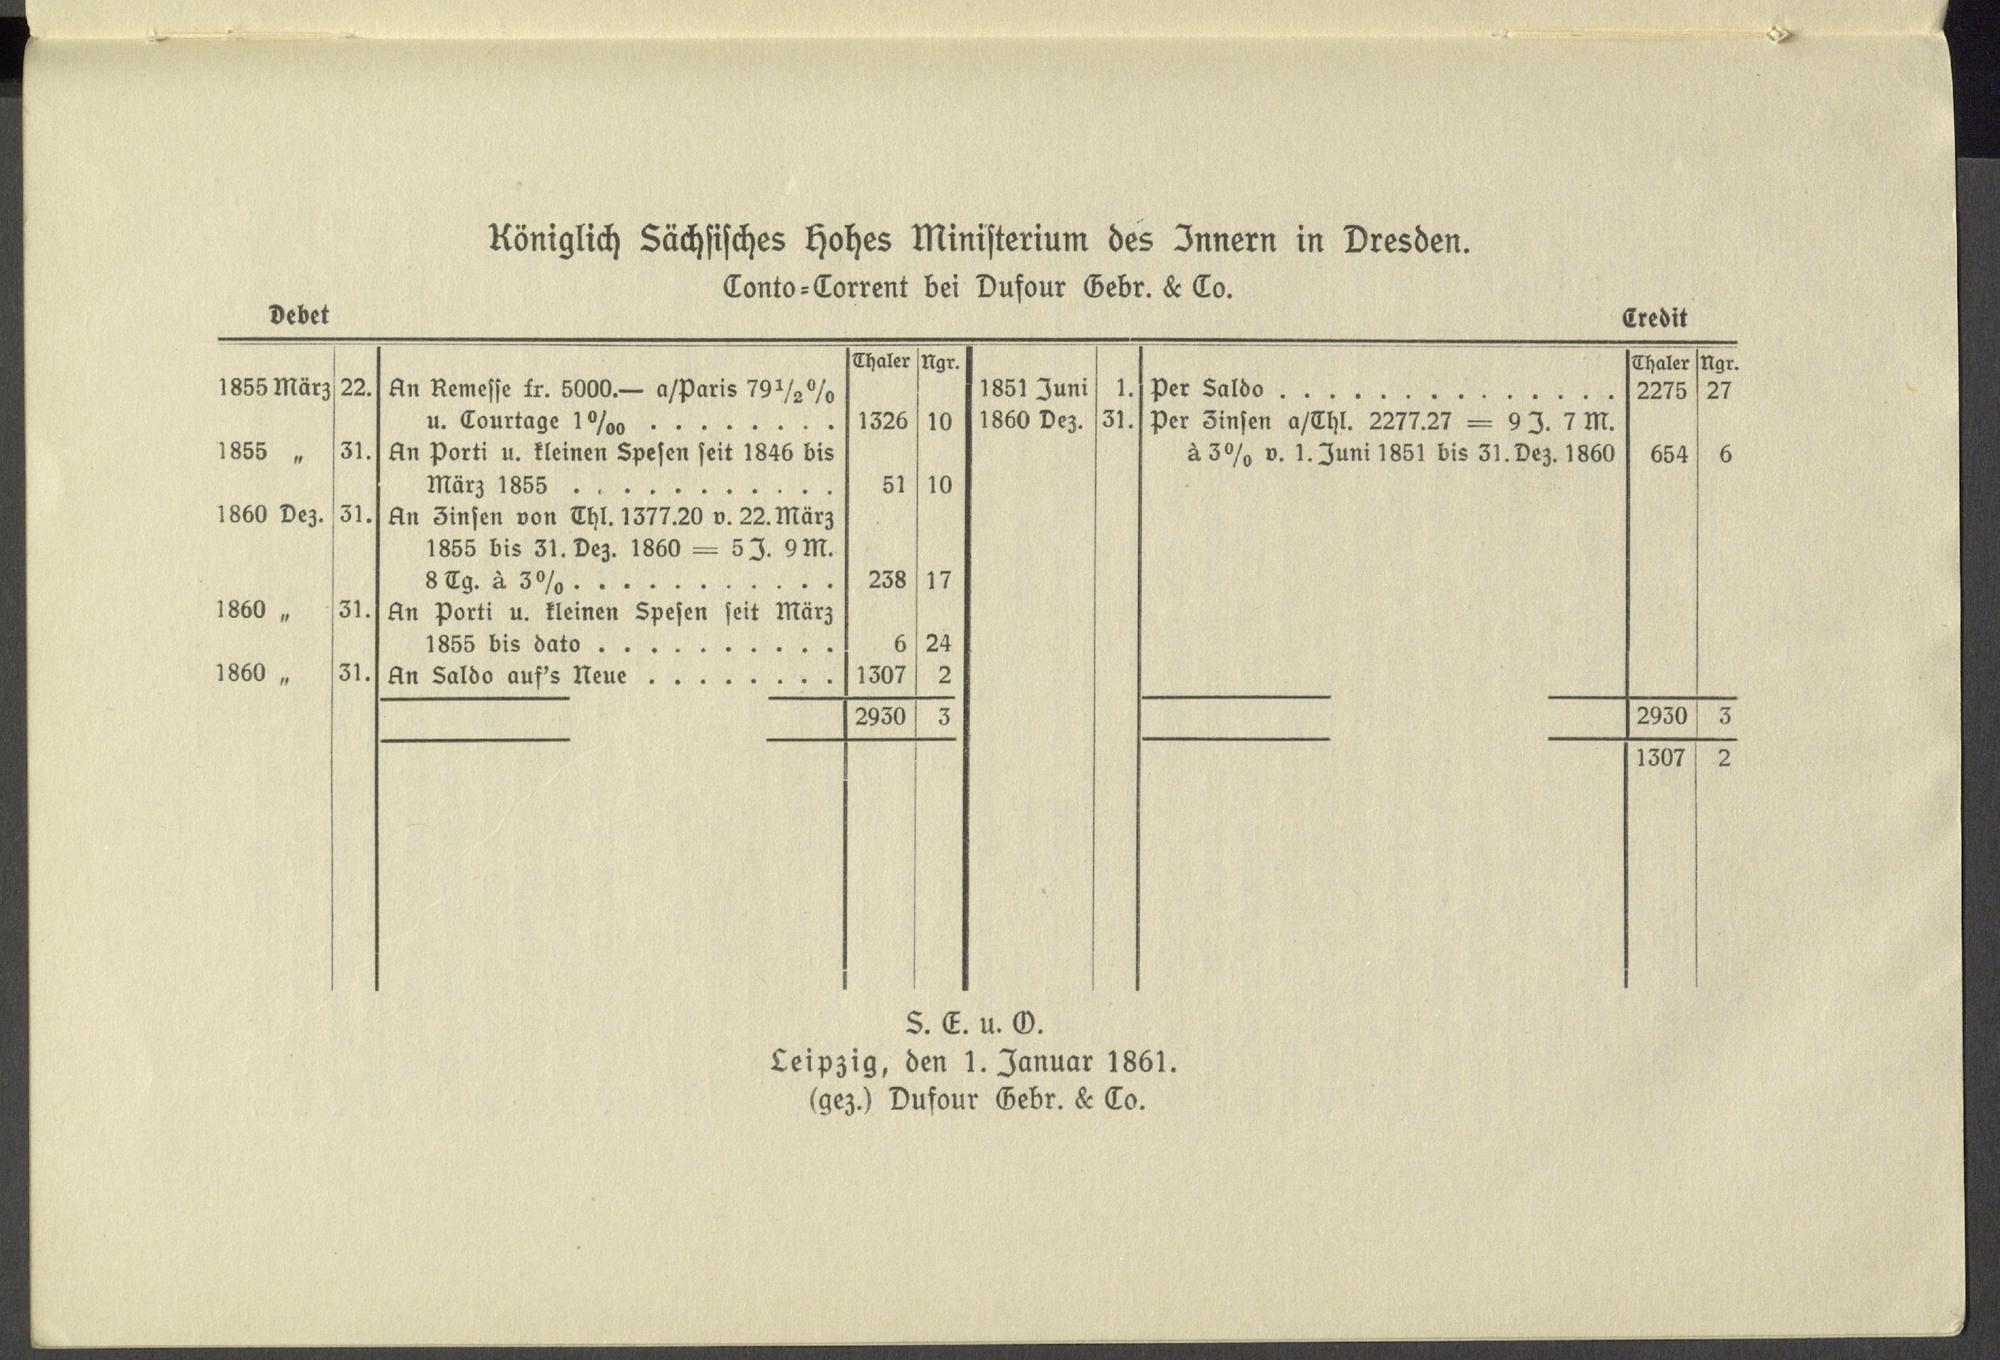 Königlich Sächsisches Hohes Ministerium des Innern in Dresden.
Conto-Corrent bei Dufour Gebr. & Co.
Debet
Credit
Thaler Ngr.
1855 März 22. An Remesse fr. 5000.— a/Paris 79 1/2 %
u. Courtage 1 ‰ . . . . . . . . 1326 10
1855 „ 31. An Porti u. kleinen Spesen seit 1846 bis
März 1855 . . . . . . . . . . . 51 10
1860 Dez. 31. An Zinsen von Thl. 1377.20 v. 22. März
1855 bis 31. Dez. 1860 = 5 J. 9 M.
8 Tg. à 3% . . . . . . . . . . . 238 17
1860 „ 31. An Porti u. kleinen Spesen seit März
1855 bis dato . . . . . . . . . . 6 24
1860 „ 31. An Saldo auf's Neue . . . . . . . . 1307 2
2930 3
Thaler Ngr.
1851 Juni 1. Per Saldo . . . . . . . . . . . . . . 2275 27
1860 Dez. 31. Per Zinsen a/Thl. 2277.27 = 9 J. 7 M.
à 3% v. 1. Juni 1851 bis 31. Dez. 1860 654 6
2930 3
1307 2
S. E. u. O.
Leipzig, den 1. Januar 1861.
(gez.) Dufour Gebr. & Co.